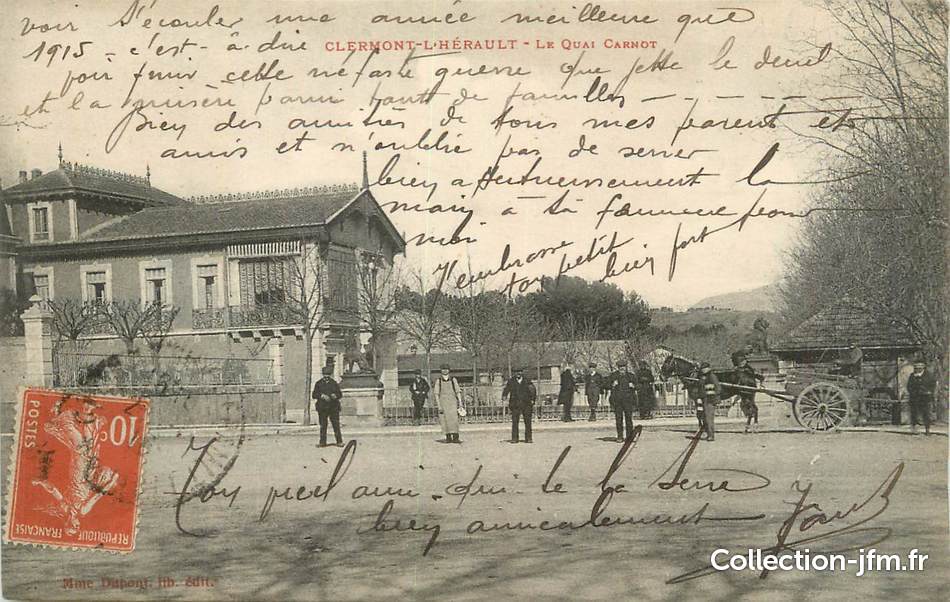 voir s'écouler une année meilleure que
1915 - c'est-à-dire
CLERMONT-L'HÉRAULT - LE QUAI CARNOT
voir finir cette néfaste guerre que jette le deuil
et la misère parmi tant de familles
Bien des amitiés de tous mes parent et
amis et n'oublie pas de serrer
bien affectueusement la
main à ta fammene pour
moi
J'embrasse
ton petit
bien fort
Ton vieil ami qui te la serre
bien amicalement
POSTES
10c
RÉPUBLIQUE FRANÇAISE
Mme Dupont, lib. édit.
Collection-jfm.fr